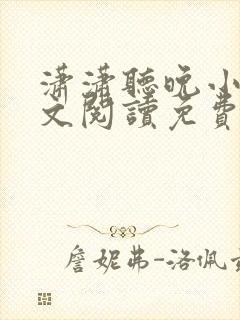 瀟瀟聽晚小
文閱讀免費
詹妮弗-洛佩